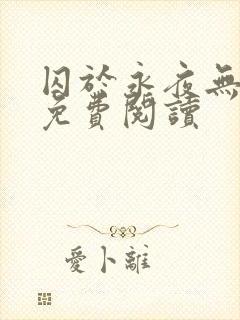 囚於永夜無
免費閱讀
愛卜離